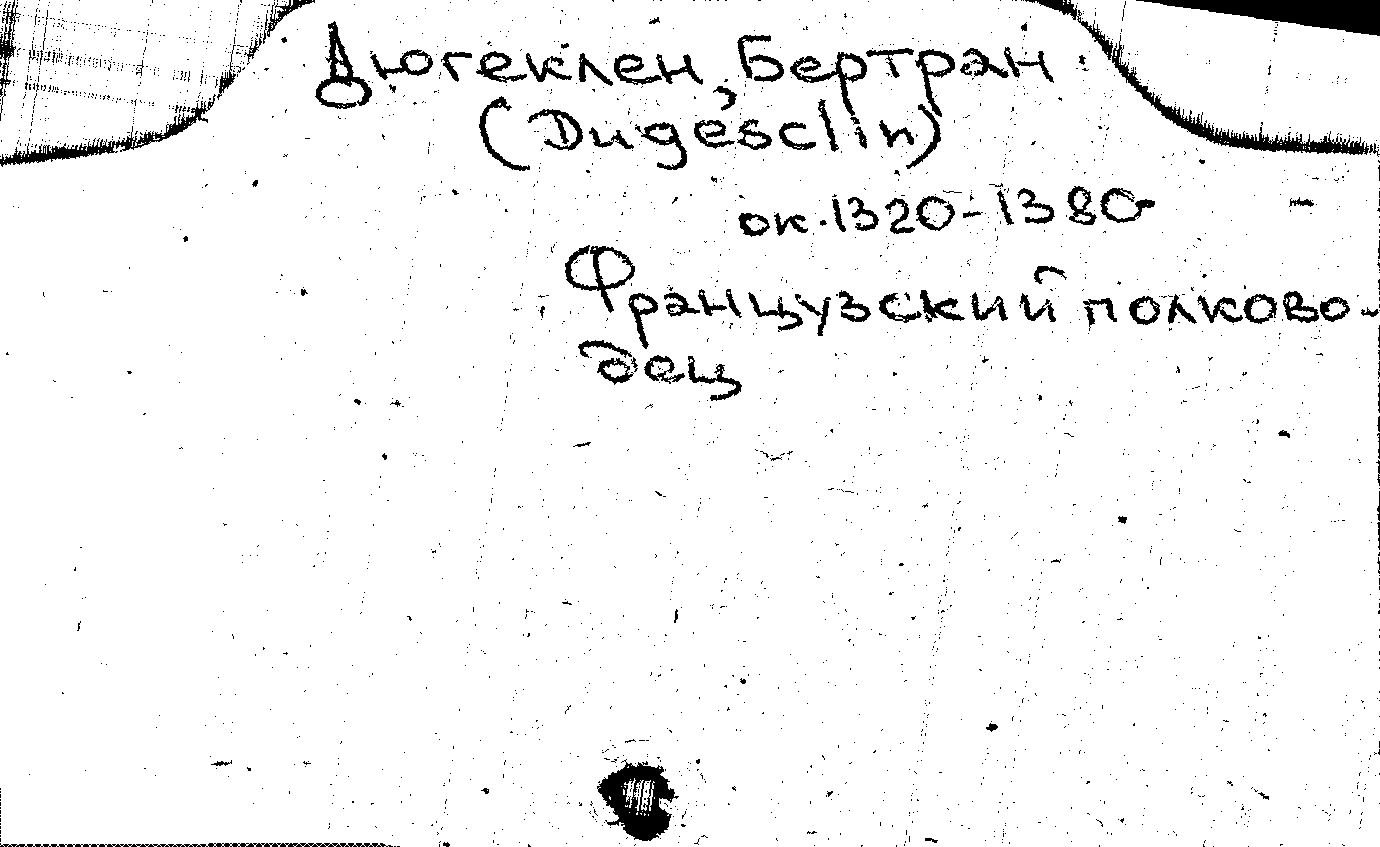 Дюгеклен, Бертран
(Dugesclin)
ок. 1320-1380
Французский полково-
дец